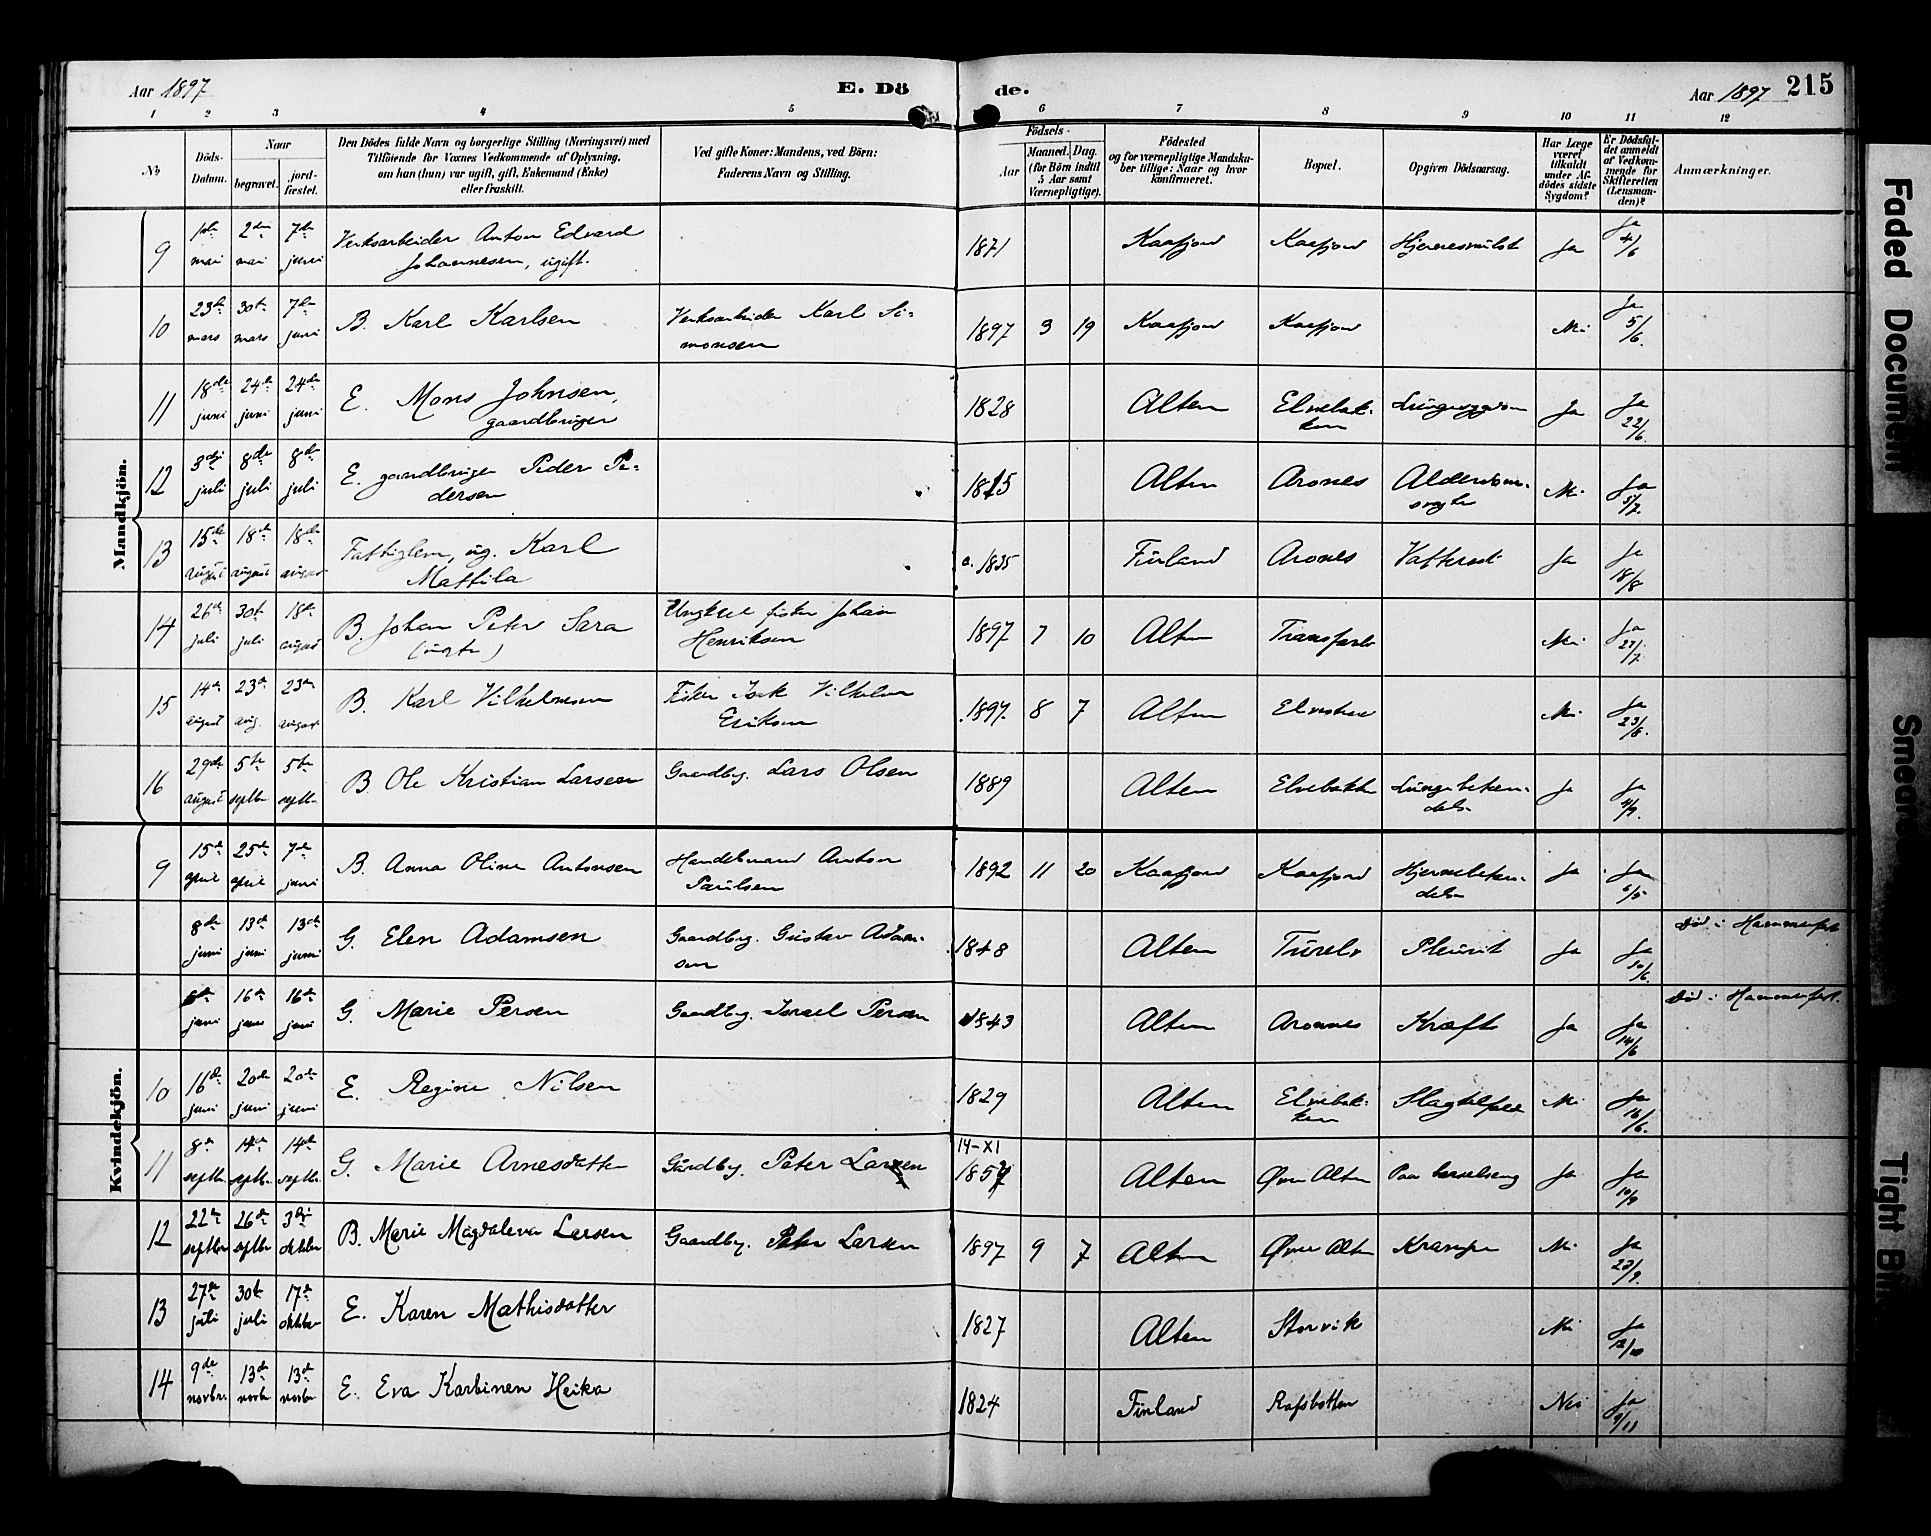 Aar 1897
E. Dö
de.
Aar 1897
215
1 2 3 4 5 6 7 8 9 10 11 12
No
Döds-
Datum.
Naar
begravet.
jord-
fæstet.
Den Dödes fulde Navn og borgerlige Stilling (Næringsvei) med
Tilföiende for Voxnes Vedkommende af Oplysning,
om han (hun) var ugift, gift, Enkemand (Enke)
eller fraskilt.
Ved gifte Koner: Mandens, ved Börn:
Faderens Navn og Stilling.
Födsels-
Aar
Maaned. Dag.
(for Börn indtil
5 Aar samt
Værnepligtige).
Födested
og for værnepligtige Mandska-
ber tillige: Naar og hvor
konfirmeret.
Bopæl.
Opgiven Dödsaarsag.
Har Læge
været
tilkaldt
under Af-
dödes sidste
Sygdom?
Er Dödsfal-
det anmeldt
af Vedkom-
mende for
Skifteretten
(Lensman-
den)?
Anmærkninger.
Mandkjön.
9 1ste mai 2den mai 7de juni Verksarbeider Anton Edvard Johannesen, ugift. 1871 Kaafjord Kaafjord Hjernesvulst Ja Ja 4/6
10 23de mars 30te mars 7de juni B. Karl Karlsen Verksarbeider Karl Si-
monsen 1897 3 19 Kaafjord Kaafjord Nei Ja 5/6.
11 18de juni 24de juni 24de juni E. Mons Johnsen, gaardbruger 1828 Alten Elvebak-
ken Lungesygdom Ja Ja 22/6.
12 3die juli 8de juli 8de juli E. gaardbruger Peder Pe-
dersen 1815 Alten Arones Alderdoms-
svaghed Nei Ja 5/7.
13 15de august 18de august 18de august Fattiglem, ug. Karl Mattila c. 1835 Finland Arones Vattersot Ja Ja 18/8
14 26de juli 30te juli 18de august B. Johan Peter Sara Ungkarl fisker Johan Henriksen 1897 7 10 Alten Transfarelv Nei Ja 27/7.
15 14de august 23de aug. 23de august B. Karl Vilhelmsen Fisker Isak Vilhelm Eriksen 1897. 8 7 Alten Nei Ja 23/8.
16 29de august 5te septbr 5te septbr. B. Ole Kristian Larsen Gaardbg. Lars Olsen 1889 Alten Elvebakken Lungebeten-
delse Ja Ja 4/9.
Kvindekjön.
9 15de april 25de april 7de juni B. Anna Oline Antonsen Handelsmand Anton Paulsen 1892 11 20 Kaafjord Kaafjord Hjernebeten-
delse Ja Ja 6/5
8de juni 13de juni 13de juni G. Elen Adamsen Gaardbrg. Gustav Adam-
sen 1848 Alten Turelv Pleurit Ja Ja 10/6. Död i Hammerfest
juni 16de juni 16de juni G. Marie Persen Gaardbrg. Israel Persen 1843 Alten Aronnes Kræft Ja Ja 14/6 Död i Hammerfest.
10 16de juni 20de juni 20de juni E. Regine Nilsen 1829 Alten Elvebak-
ken Slagtilfælde Nei Ja 16/6.
11 8de septbr. 14de septbr. 14de septbr. G. Marie Arnesdatter Gårdbg. Peter Larsen 14-XI
1857 Alten Øvre Alten Paa barselseng Ja Ja 10/9
12 22de septbr 26de septbr 3die oktober B. Marie Magdalena Larsen Gaardbg. Peter Larsen 1897 9 7 Alten Øvre Alten Krampe Nei Ja 22/9.
13 27de juli 30te juli 17de oktober E. Karen Mathisdatter 1827 Alten Storvik Nei Ja
14 9de novbr. 13de novbr 13de novbr E. Eva Karbinen Heika 1824 Finland Rafsbotten Nei Ja 9/11
Faded Document
Smeared
Tight Bin